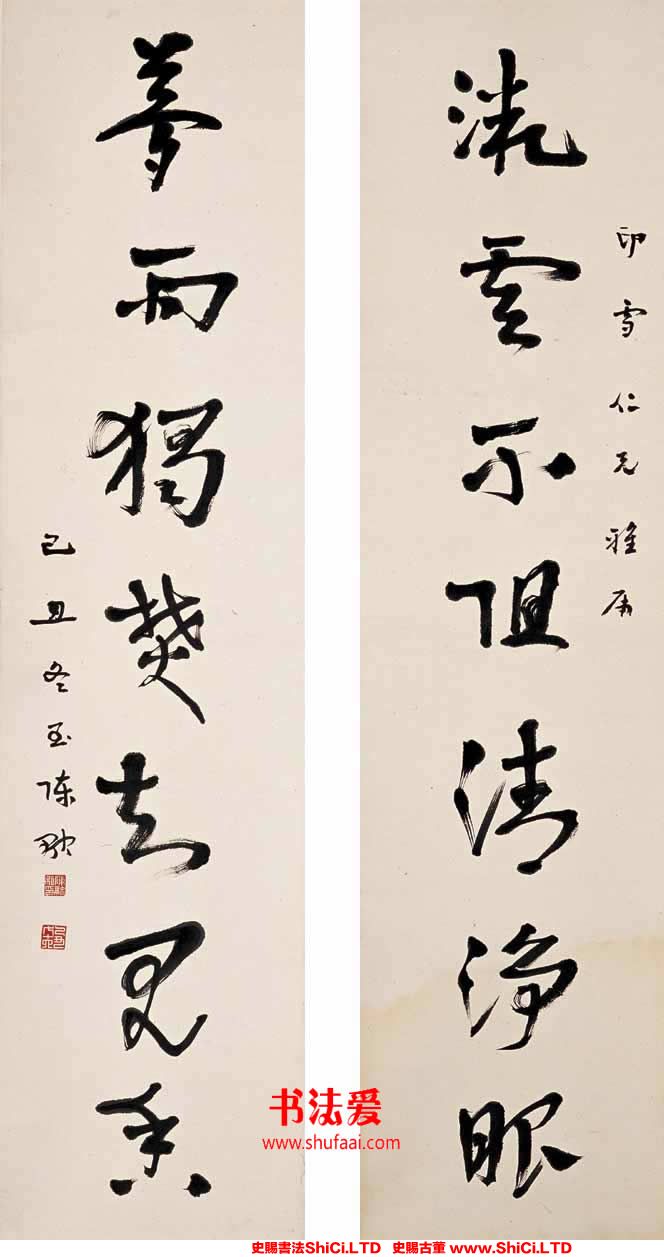 印雪仁兄雅屬
流雲不阻清淨眼
夢雨獨焚知見香
己丑冬至陳融
书法爱
www.shufaai.com
史賜書法ShiCi.LTD 史賜古董 www.ShiCi.LTD